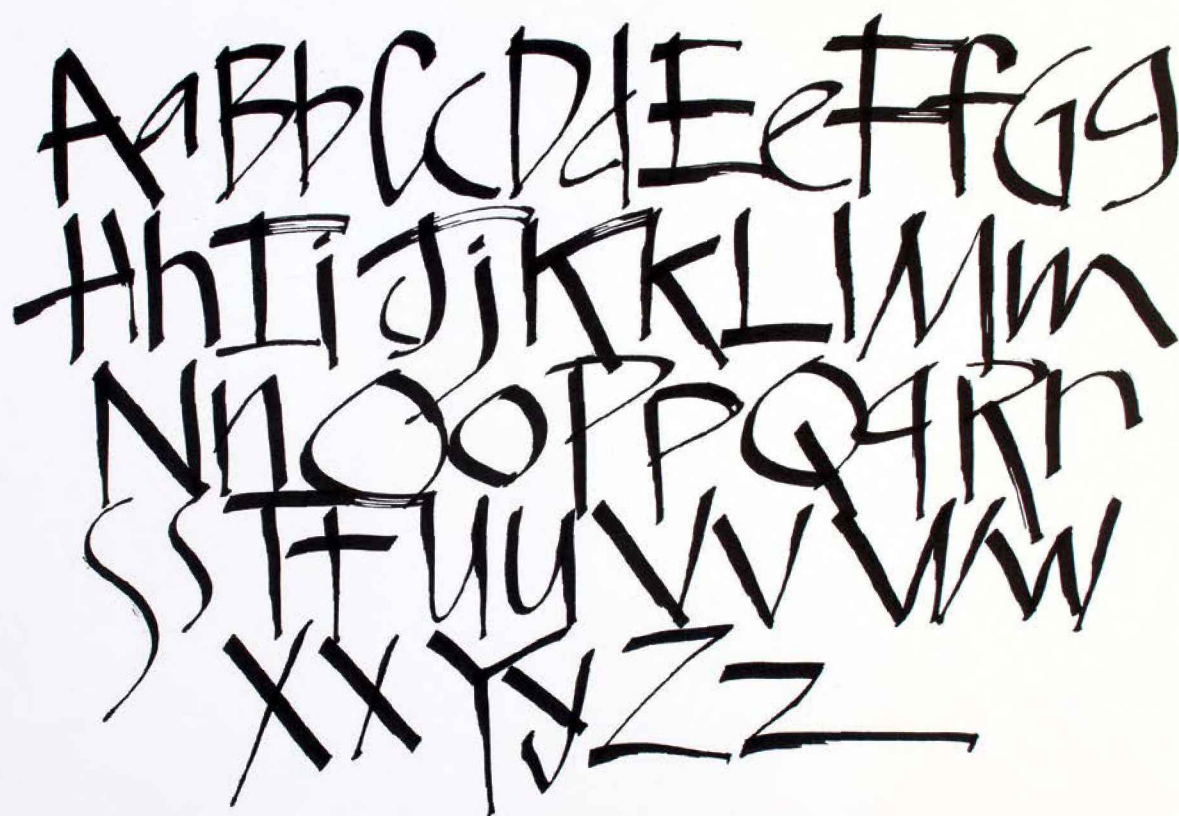 AaBbCcDdEeFfGg
HhIiJjKkLlMm
NnOoPpQqRr
SsTtUuVvWw
XxYyZz